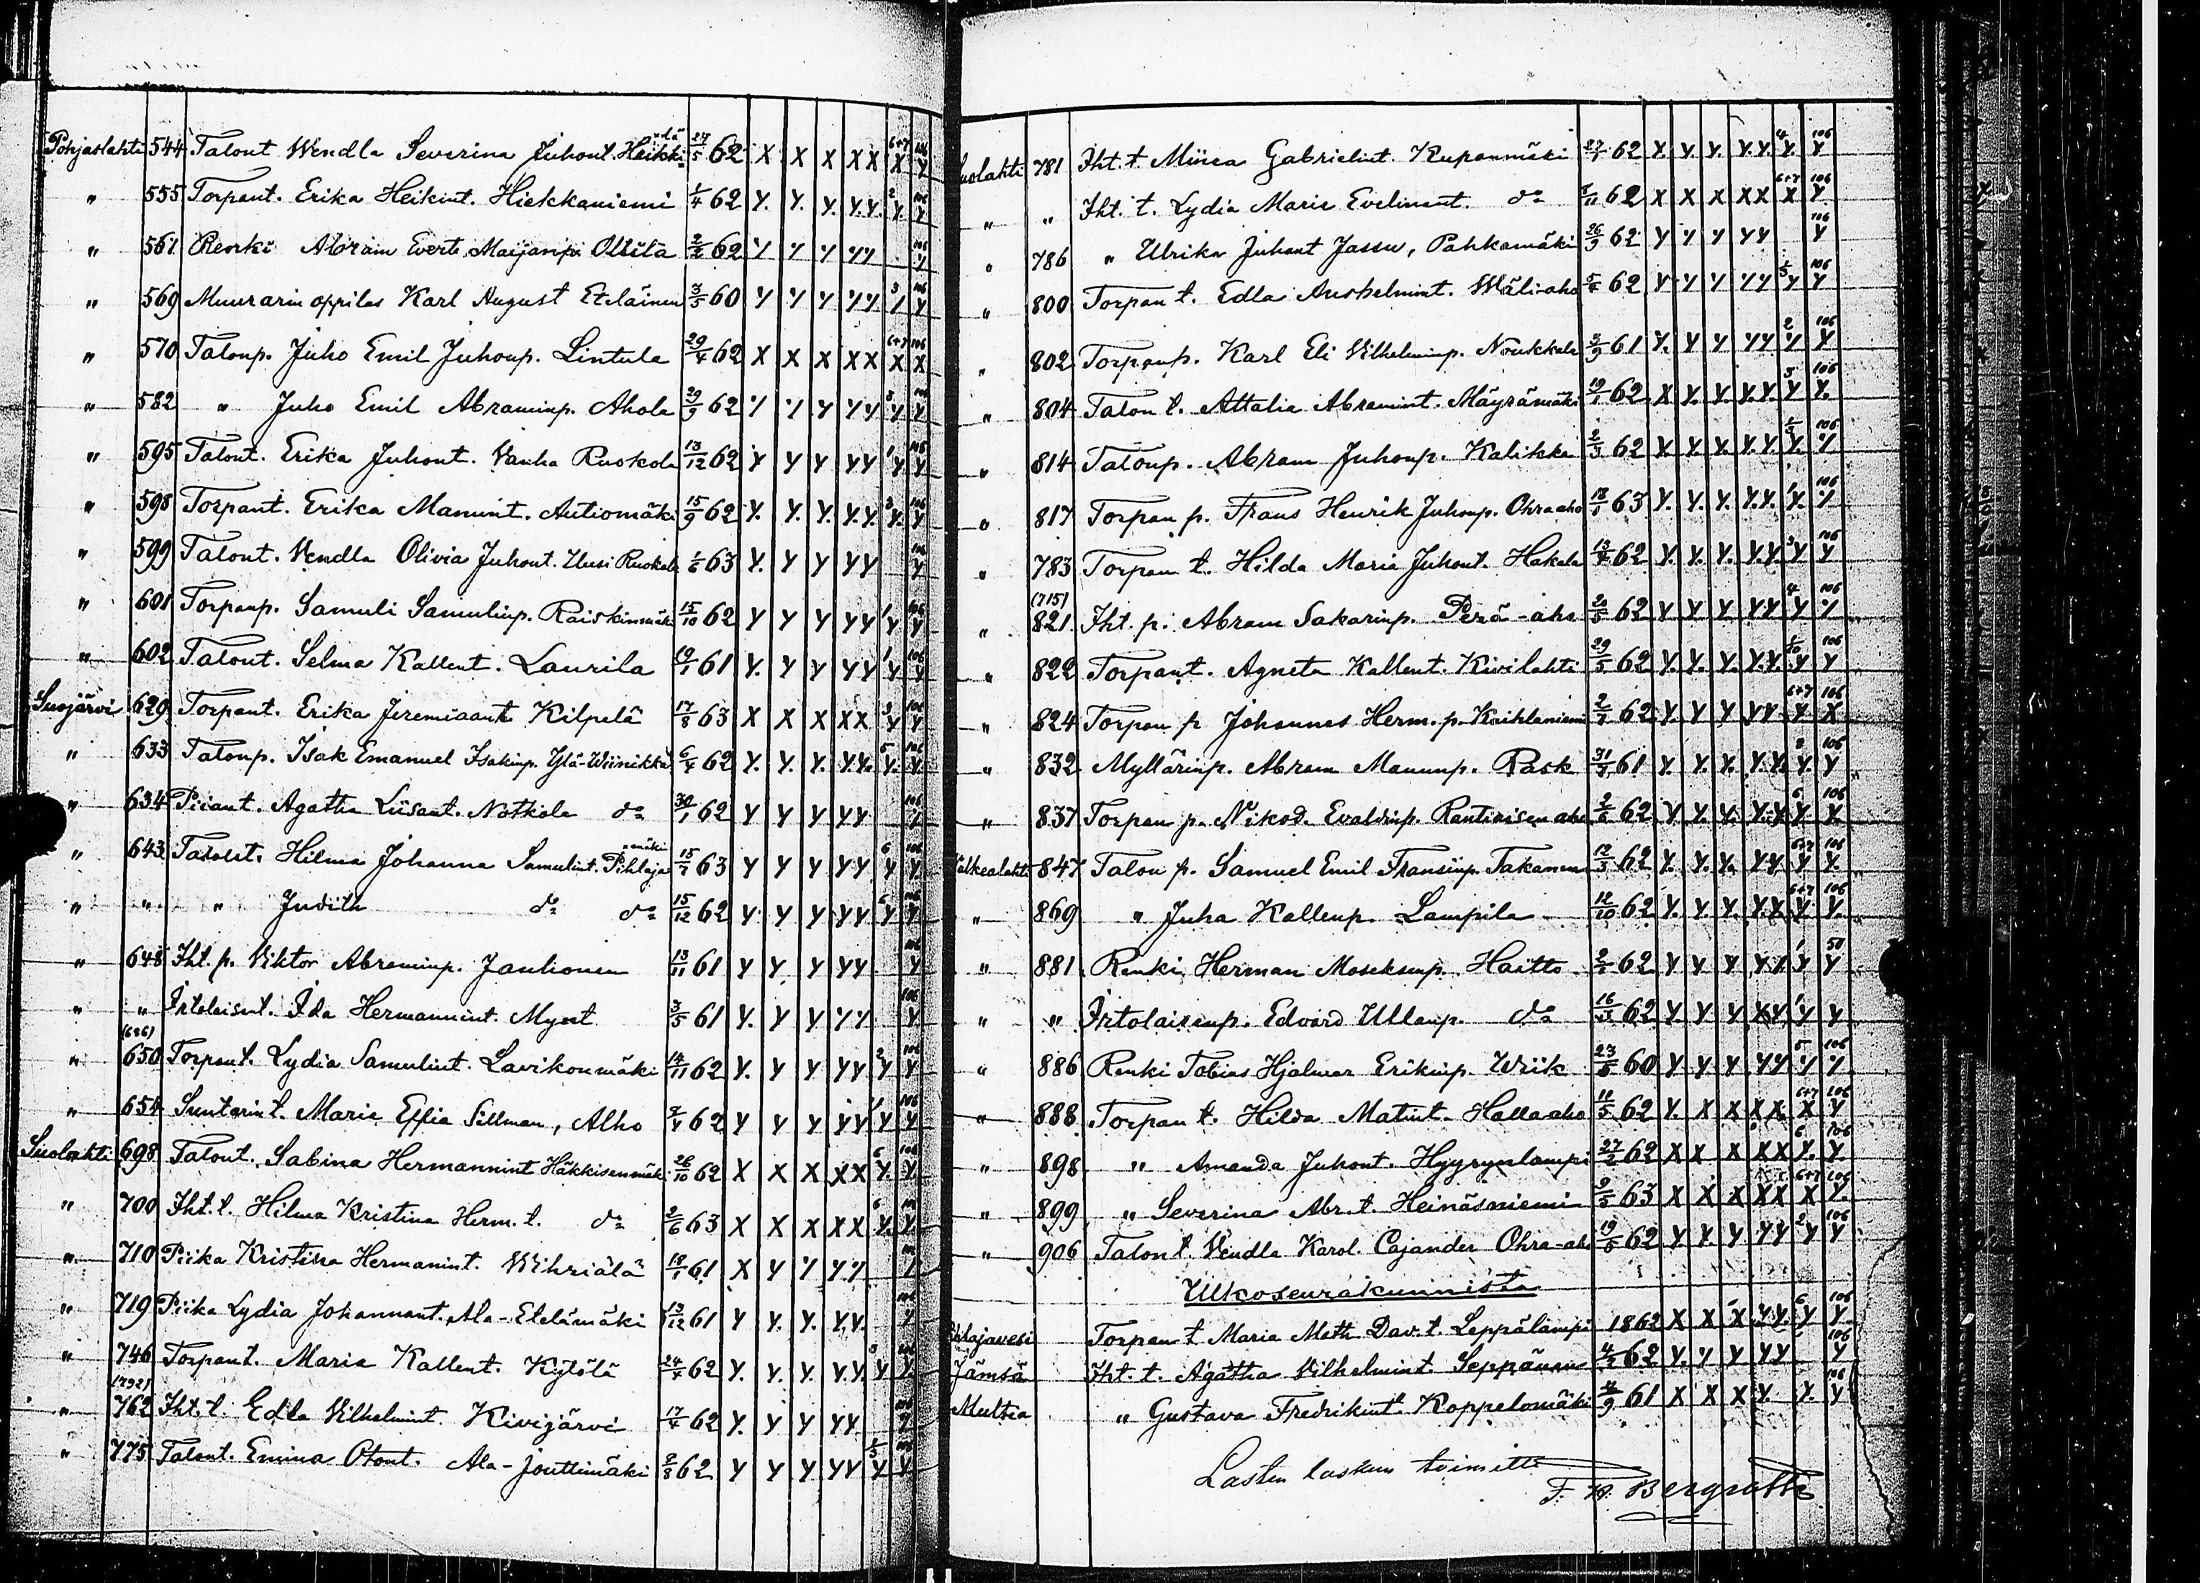 Pohjaslahti 544 Talont Wendla Severina Juhont. Heikkilä 27/5 62 X X X X X 6+7 X 106 Y
" 555 Torpant. Erika Heikint. Hiekkaniemi 1/4 62 Y. Y. Y. Y. Y. 2 Y. 106 Y
" 561 Renki Abram Everti Maijanp. Ollila 2/2 62 Y Y Y Y Y 106 Y
" 569 Muurarin oppilas Karl August Eteläinen 3/5 60 Y Y Y Y Y 3 Y 106 Y
" 570 Talonp. Juho Emil Juhonp. Lintula 29/4 62 X X X X X 6+7 X 106 X
" 582 " Juho Emil Abraminp. Ahola 29/9 62 Y Y Y Y Y 3 Y 106 Y
" 595 Talont. Erika Juhont. Vanha Ruokola 13/12 62 Y Y Y Y Y 1 Y 106 Y
" 598 Torpant. Erika Manunt. Autiomäki 15/9 62 Y. Y. Y. Y. Y. 2 Y. 106 Y
" 599 Talont. Vendla Olivia Juhont. Uusi Ruokola 1/6 63 Y. Y Y Y Y 106 Y
" 601 Torpanp. Samuli Samulinp. Raiskinmäki 15/10 62 Y Y Y Y Y 1 Y 106 Y
" 602 Talont. Selma Kallent. Laurila 19/1 61 Y. Y Y Y Y 1 Y 106 Y
Susijärvi 629 Torpant. Erika Jeremiaant. Kilpelä 17/8 63 X X X X X 3 Y 106 Y
" 633 Talonp. Isak Emanuel Isakinp. Ylä-Wiinikka 6/4 62 Y. Y. Y. Y. Y. 5 Y. 106 Y
" 634 Piiant. Agatha Liisant. Notkola do 30/1 62 Y Y Y Y Y 106 Y
" 643 Talont. Hilma Johanna Samulint. Pihlajamäki 15/7 63 Y Y Y Y Y 6 Y 106 Y
" " " Judith do do 15/12 62 Y Y Y Y Y 6 Y 106 Y
" 648 Iht. p. Viktor Abraminp. Jauhonen 13/11 61 Y Y Y Y Y 106 Y
" " Irtolaisent. Ida Hermannint. Myrt 3/5 61 Y. Y Y Y Y 106 Y
" (686) 650 Torpant. Lydia Samulint. Lavikonmäki 14/11 62 Y. Y Y Y Y 2 Y 106 Y
" 654 Suntarint. Maria Effia Sillman, Alho 2/4 62 Y Y Y Y Y 1 Y 106 Y
Suolahti 698 Talont. Sabina Hermannint Häkkisenmäki 26/10 62 X X X X X 6 Y. 106 Y.
" 700 Iht. t. Hilma Kristina Herm. t. do 2/6 63 X X X X X 6 Y. 106 Y.
" 710 Piika Kristina Hermanint. Wihriälä 18/1 61 X Y Y Y Y Y
" 719 Piika Lydia Johannant. Ala-Etelämäki 13/12 61 Y Y. Y. Y. Y. 106 Y
" 746 Torpant. Maria Kallent. Kytölä 24/4 62 Y. Y. Y. Y. Y. 3 Y 106 Y.
" (792) 762 Iht. t. Edla Vilhelmint. Kivijärvi 17/4 62 Y. Y Y Y Y 106 Y
" 775 Talont. Emma Otont. Ala-Jouttimäki 2/8 62 Y Y Y Y Y 1/5 Y 106 Y
Suolahti 781 Iht. t. Miina Gabrielint. Kupanmäki 27/1 62 Y. Y. Y. Y. Y. 4 Y. 106 Y
" " Iht. t. Lydia Maria Evelinant. do 8/11 62 X X X X X 6+7 X 106 Y.
" 786 " Ulrika Juhont Jassu, Pahkamäki 26/9 62 Y Y Y Y Y 106 Y
" 800 Torpan t. Edla Anshelmint. Wäli-aho 5/4 62 Y Y Y Y Y 1/5 Y 106 Y
" 802 Torpanp. Karl Eli Vilhelminp. Noukkala 3/9 61 Y. Y Y Y Y 2 Y 106 Y
" 804 Talon t. Attalia Abramint. Mäyrämäki 19/1 62 X Y. Y. Y. Y. 3 Y 106 Y.
" 814 Talonp. Abram Juhonp. Kalikka 2/3 62 Y. Y. Y. Y. Y. 1/5 Y. 106 Y
" 817 Torpan p. Frans Henrik Juhonp. Ohraaho 18/1 63 Y. Y. Y. Y. Y. 1 Y. 106 Y
" 783 Torpan t. Hilda Maria Juhont. Hakala 13/4 62 Y. Y. Y. Y. Y. 3 Y 106 Y
" (715) 821 Iht. p. Abram Sakarinp. Perä-aho 20/5 62 Y. Y. Y. Y. Y. 4 Y 106 Y
" 822 Torpant. Agneta Kallent. Kivilahti 29/5 62 Y. Y. Y. Y. Y. 1/10 Y 106 Y
" 824 Torpan p. Johannes Herm. p. Kaihlaniemi 2/7 62 Y. Y Y Y Y 6+7 Y 106 X
" 832 Myllärinp. Abram Manunp. Rask 31/7 61 Y. Y. Y. Y. Y. 2 Y. 106 Y
" 837 Torpan p. Nikod. Evaldinp. Rantinisenaho 2/6 62 Y. Y. Y. Y. Y. 6 Y. 106 X.
Valkealahti 847 Talon p. Samuel Emil Fransinp. Takanen 12/3 62 Y. Y. Y. Y. Y. 6+7 Y. 106 Y.
" 869 " Juha Kallenp. Lampila 12/10 62 Y. Y. Y. Y. X 6+7 Y. 106 Y.
" 881 Renki Herman Moseksenp. Haitto 2/2 62 Y Y Y Y Y 1 Y 50 Y
" " Irtolaisenp. Edvard Ullanp. do 16/3 62 Y Y Y X Y 1 Y Y
" 886 Renki Tobias Hjalmar Erikinp. Wiik 23/5 60 Y Y Y Y Y 5 Y 106 Y
" 888 Torpan t. Hilda Matint. Hallaaho 11/5 62 Y. X X X X 6+7 X 106 Y
" 898 " Amanda Juhont. Hyyrynlampi 27/2 62 X X X X X 6 Y. 106 Y.
" 899 " Severina Abr. t. Heinäsniemi 2/5 63 X X X X X 6+7 X 106 Y.
" 906 Talon t. Vendla Karol. Cajander Ohra-aho 19/5 62 Y Y. Y Y Y 2 Y 106 Y
Ulkoseurakunnista
Pihlajavesi Torpan t. Maria Math. Dav. t. Leppälampi 1862 X X X Y Y. 6 Y. 106 Y.
Jämsä Iht. t. Agatha Vilhelmint. Seppänen 4/2 62 Y. Y Y Y Y 106 Y
Multia " Gustava Fredrikint. Koppelomäki 11/9 61 X X X Y. Y. 106 Y
Lasten laskun toimitti
F. W. Bergroth